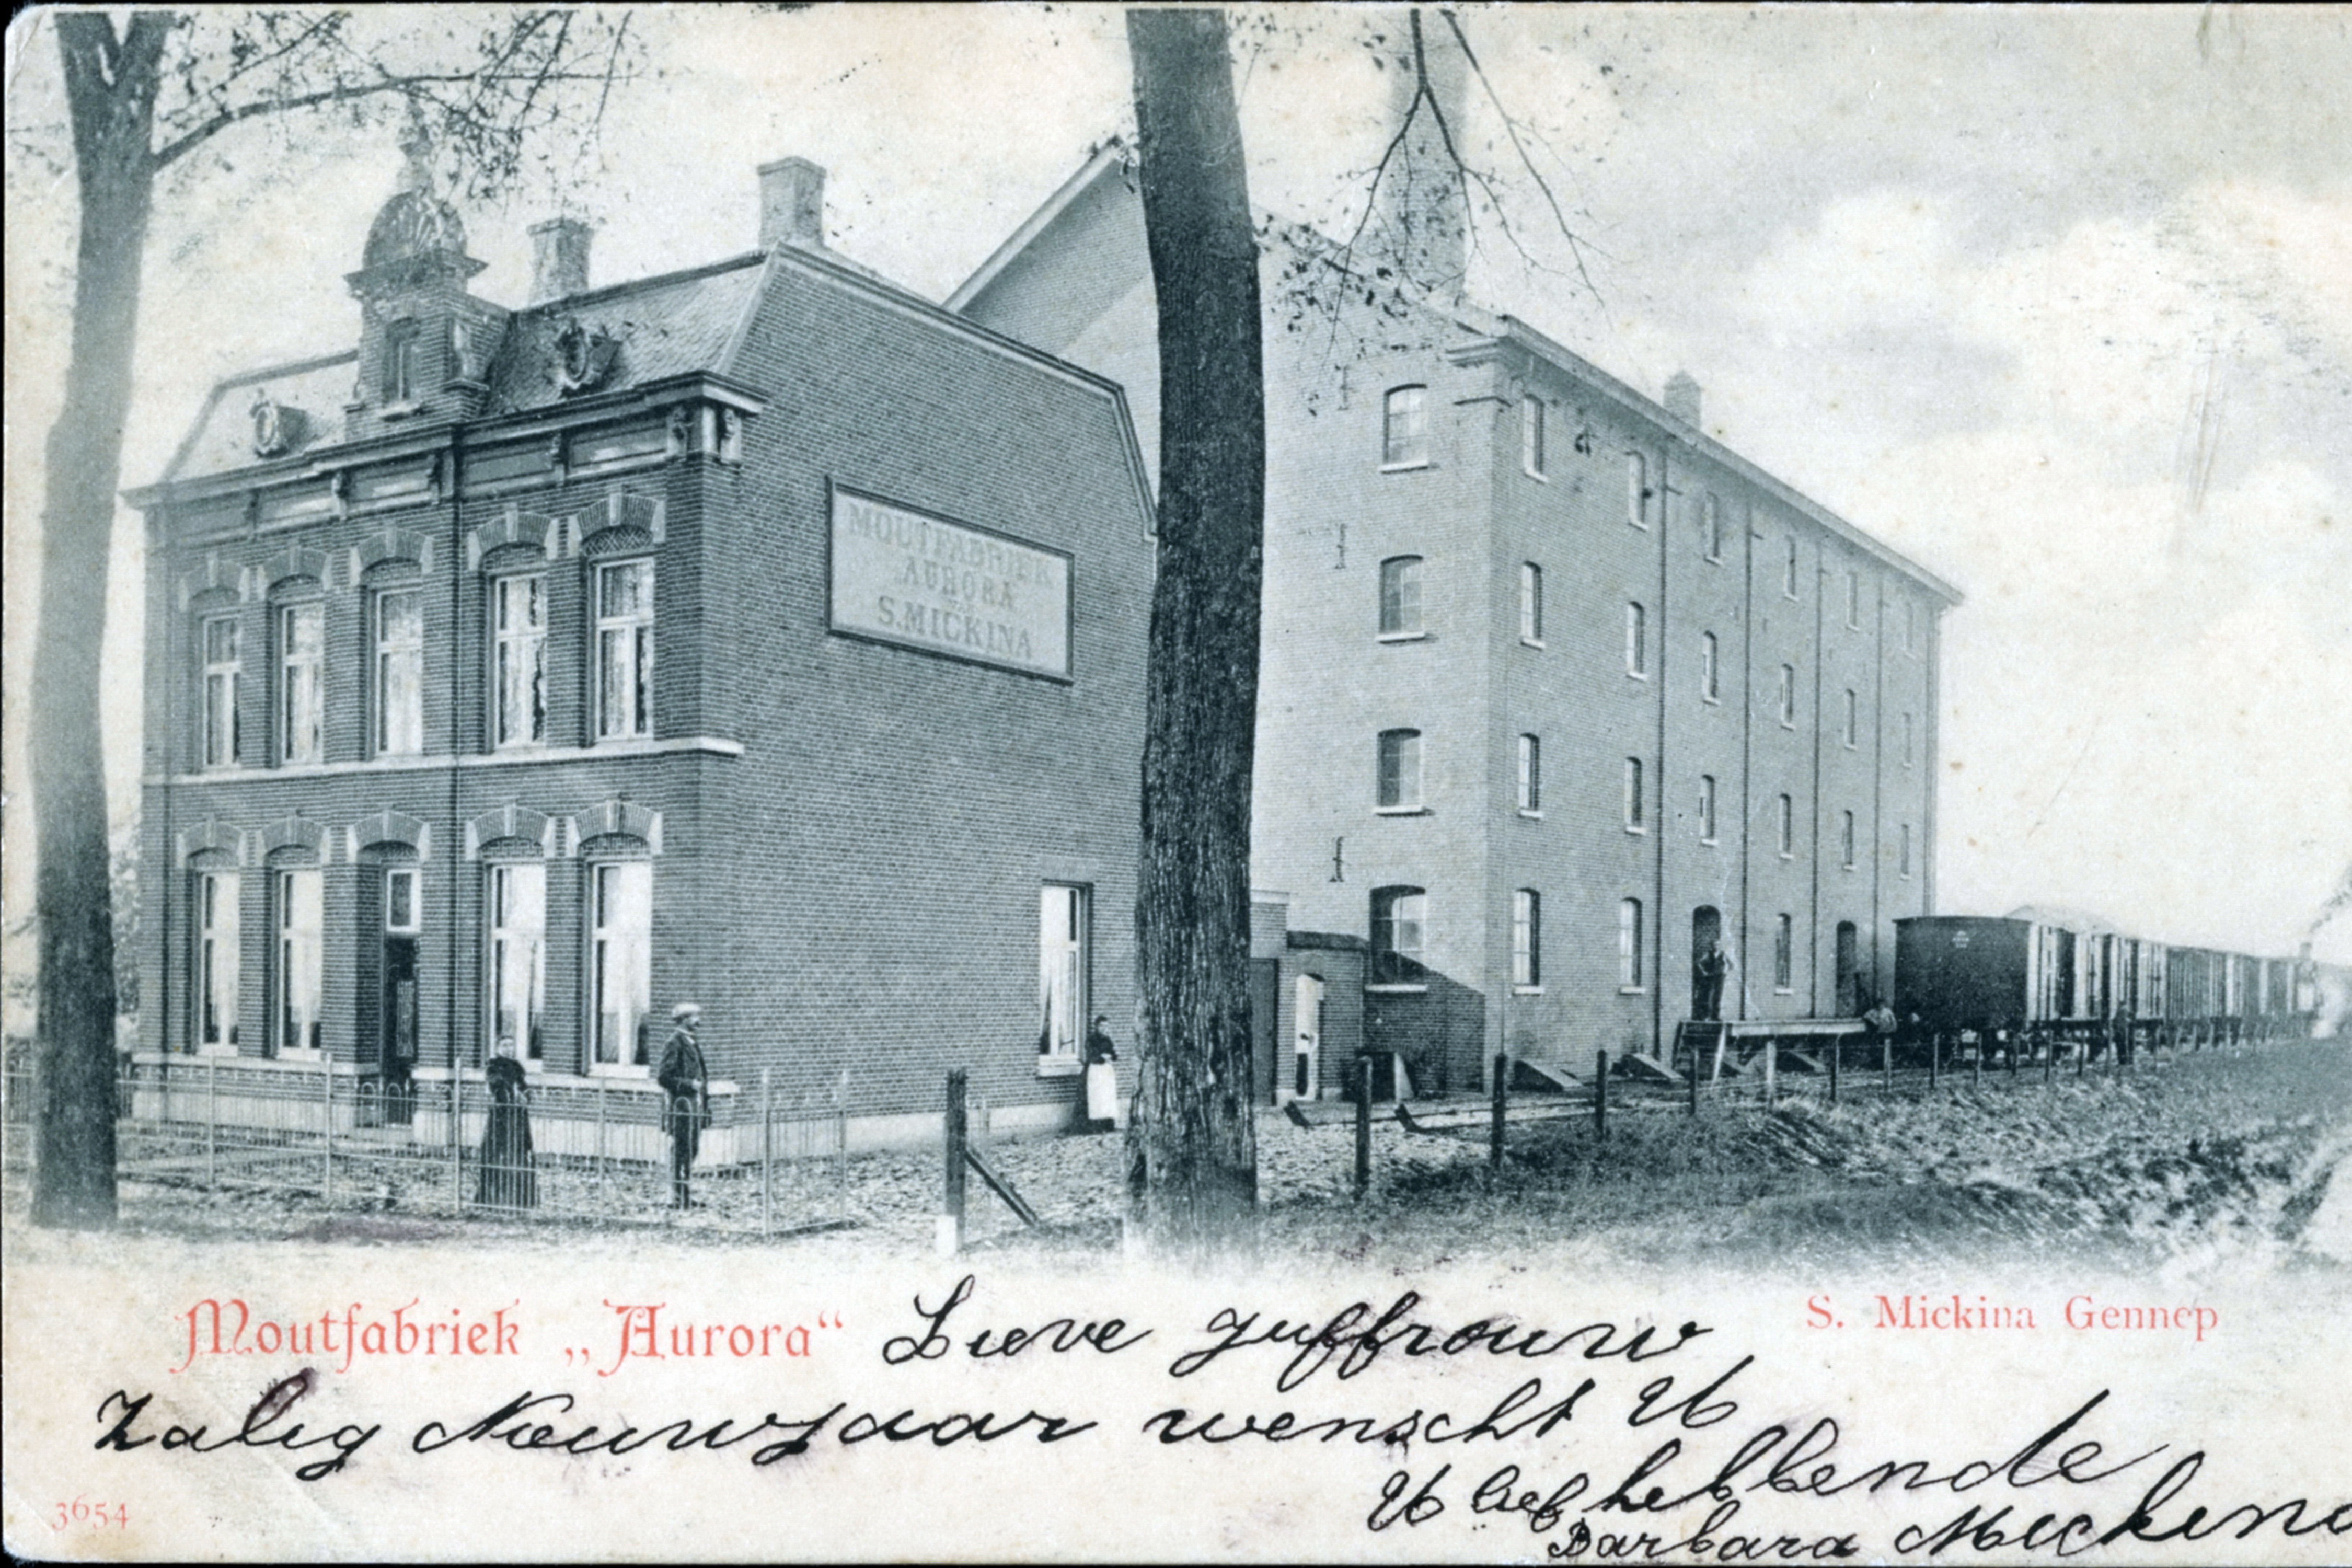 MOUTFABRIEK
AURORA
S.MICKINA
Moutfabriek „Aurora“
S. Mickina Gennep
Lieve juffrouw
Zalig Nieuwjaar wenscht U
U liefhebbende
Barbara Mickina
3654